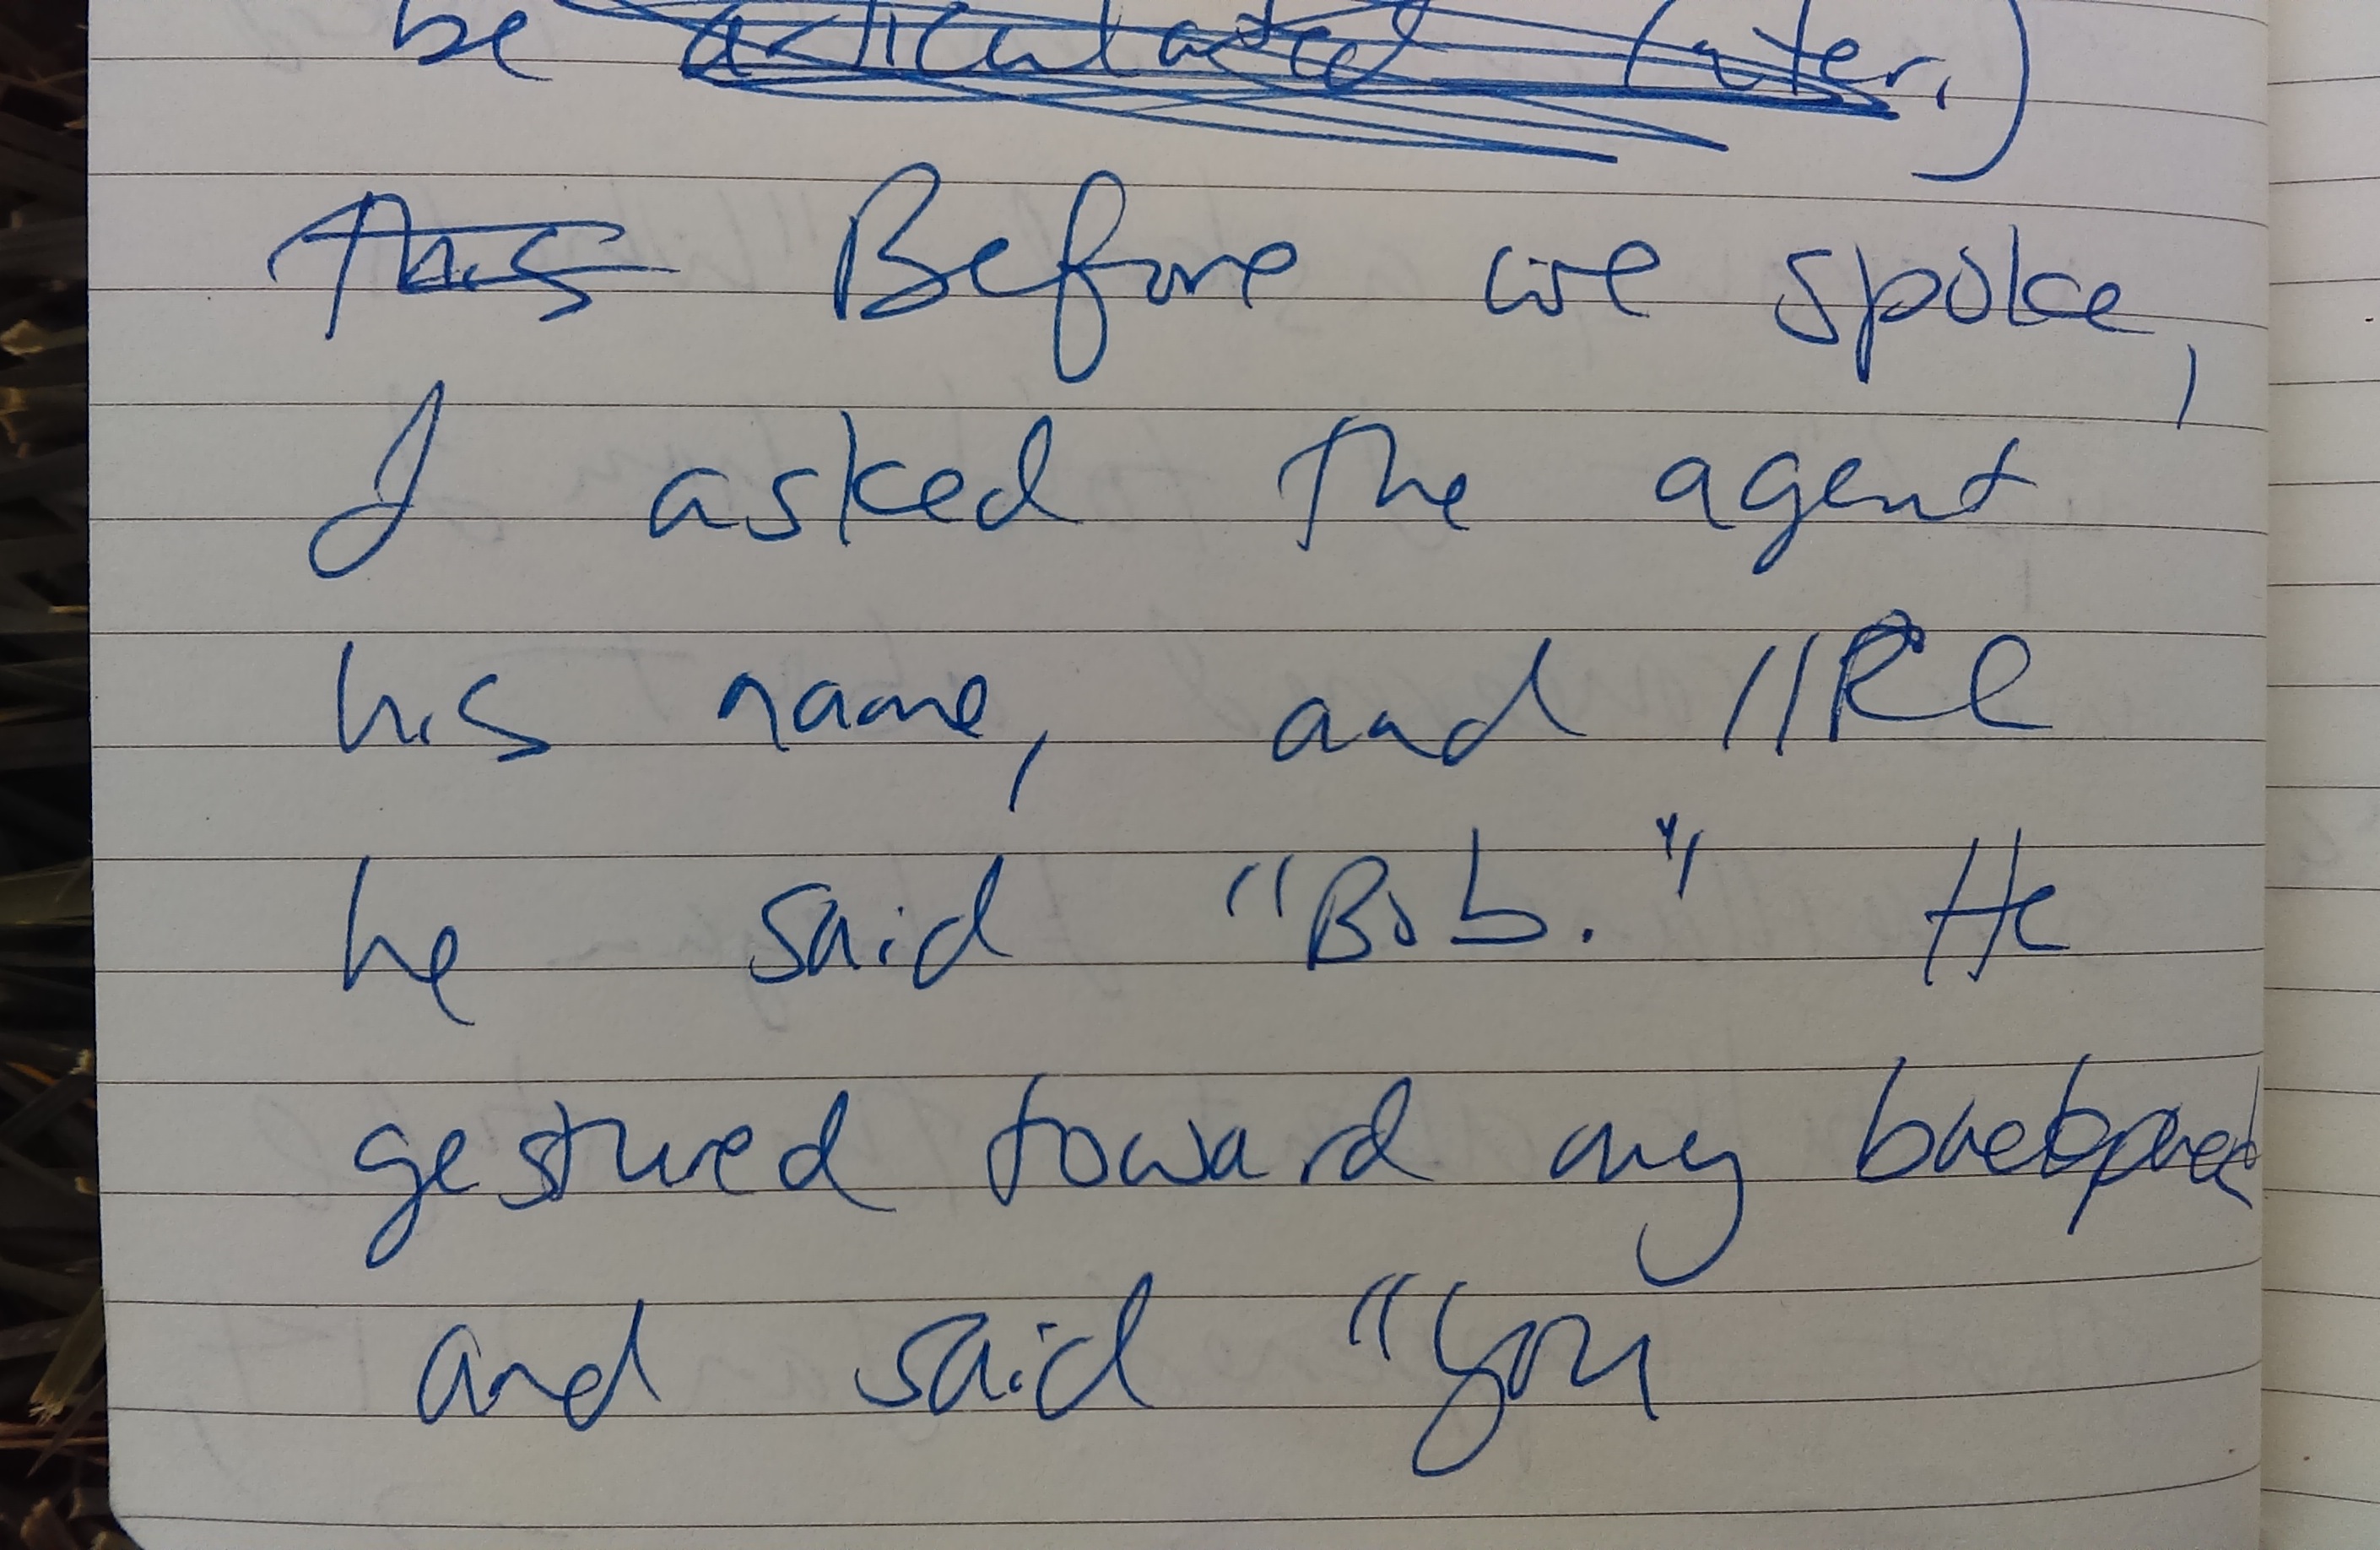 be articulated later.)
This Before we spoke,
I asked the agent
his name, and "Re
he said "Bob." He
gestured toward my backpack
and said "You